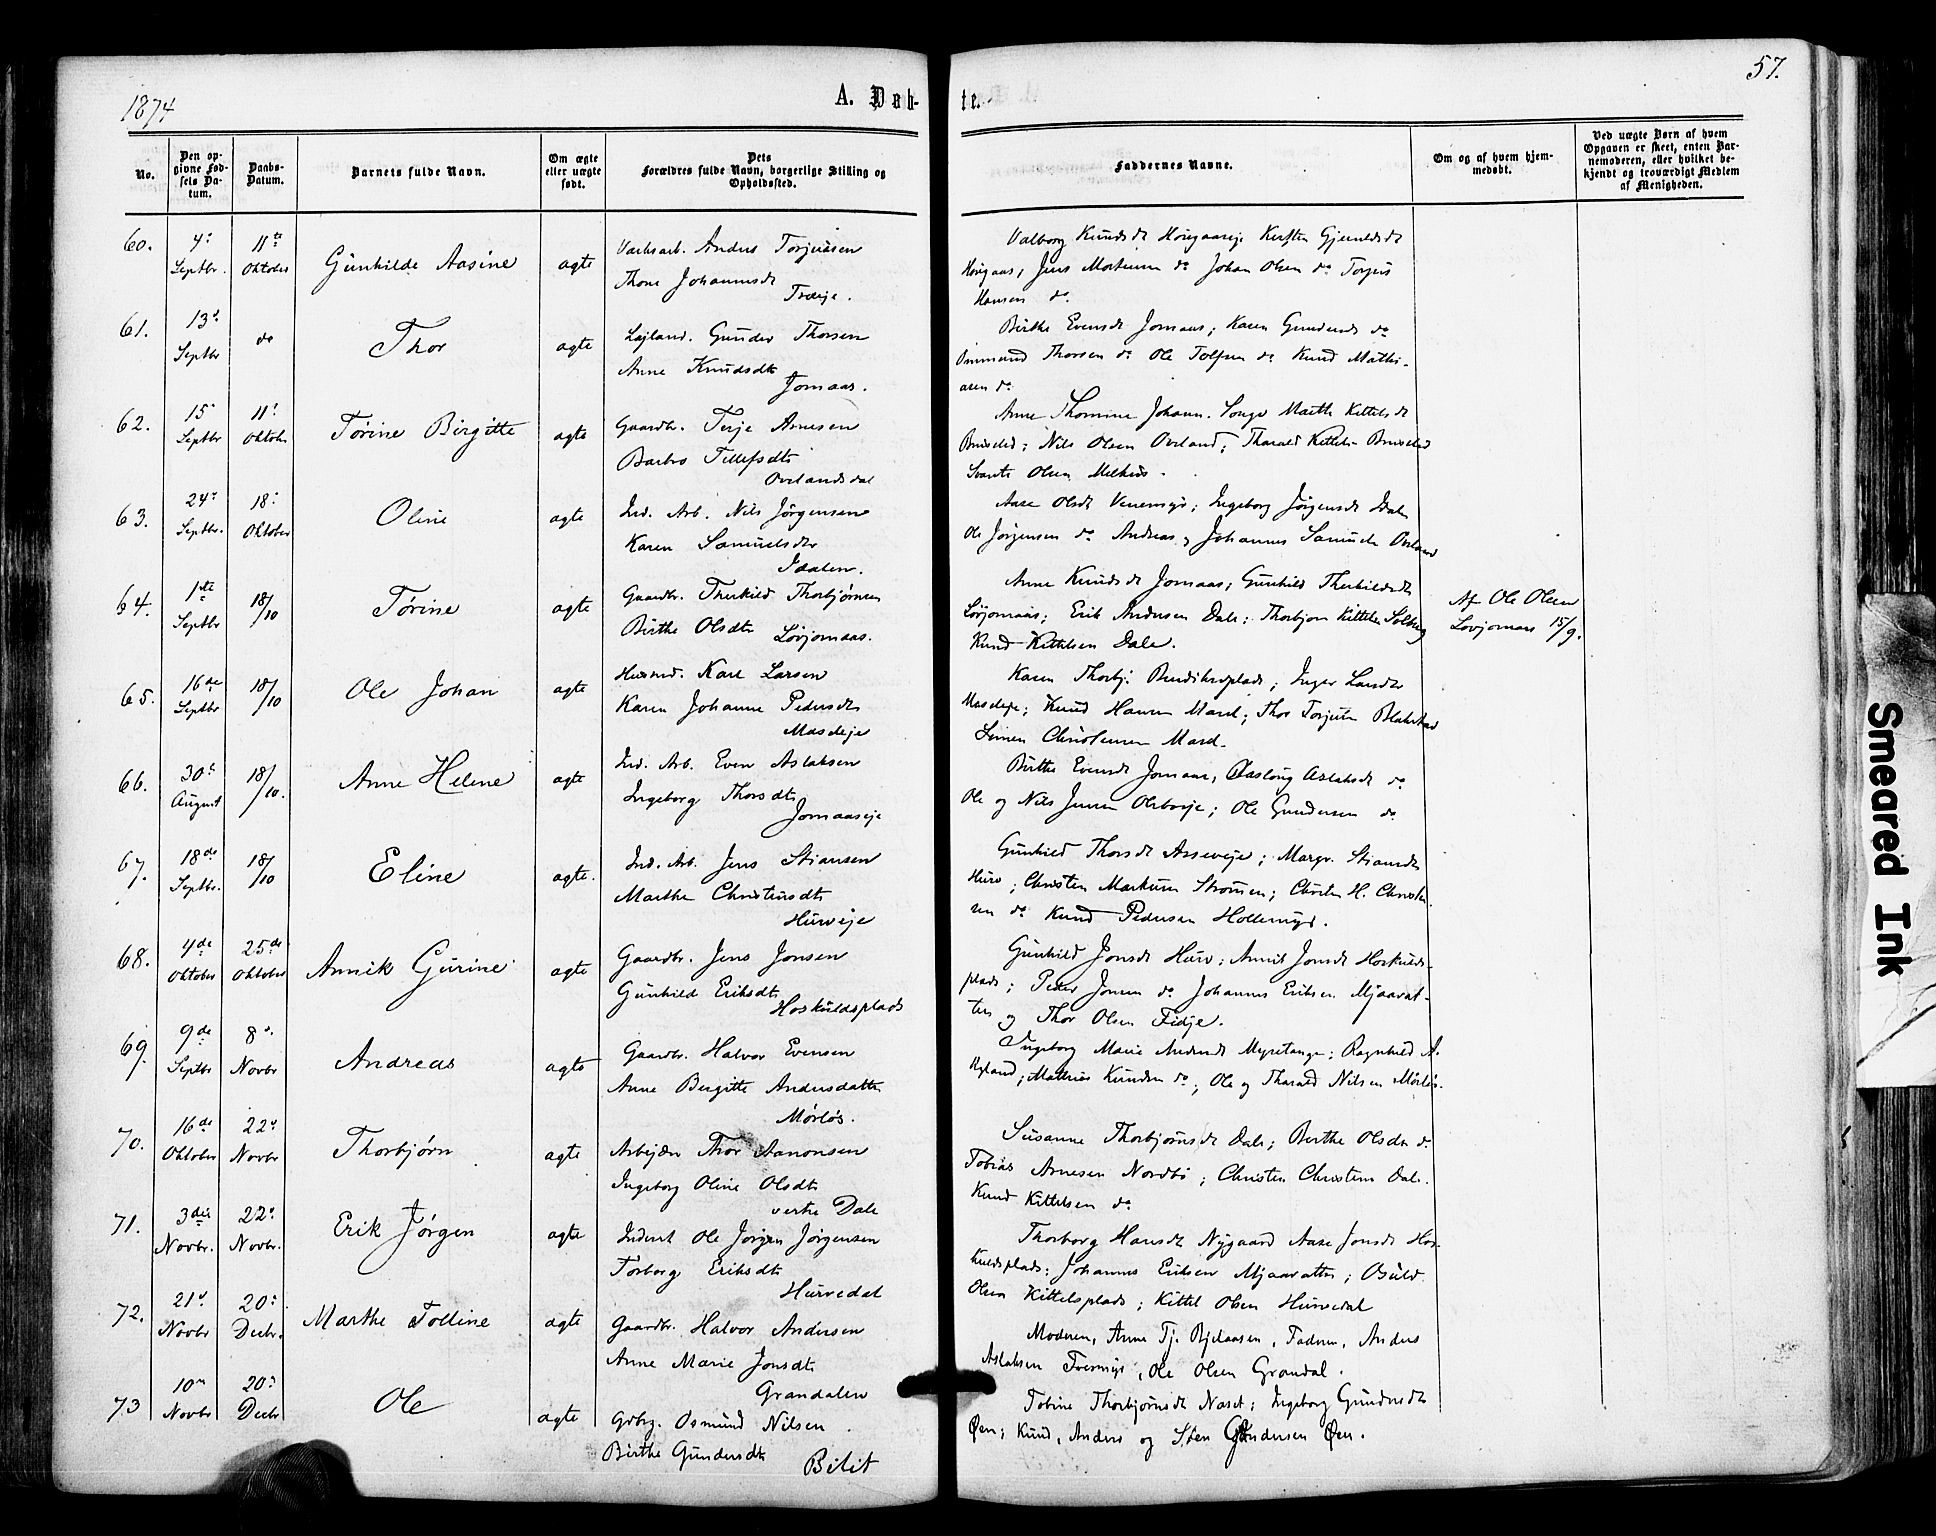 1874
A. Døb-
te.
57.
No.
Den op-
givne Fød-
sels Da-
tum.
Daabs-
Datum.
Barnets fulde Navn.
Om ægte
eller uægte
født.
Dets
Forældres fulde Navn, borgerlige Stilling og
Opholdssted.
Faddernes Navne.
Om og af hvem hjem-
medøbt.
Ved uægte Børn af hvem
Opgaven er skeet, enten Bar-
nemoderen, eller hvilket be-
kjendt og troværdigt Medlem
af Menigheden.
60. 4de Septbr. 11te Oktober Gunhilde Aasine ægte
Anders Torjussen
Thone Johannesdt
Træje.
Valborg Knudsdt Kirsten
Jens Mortensen do Johan Olsen do Torjus
Hansen do.
61. 13d Septbr do Thor ægte
Gunder Thorsen
Anne Knudsdt
Jomaas.
Birthe Evensdt Jomaas; Karen Gundersdt do
Osmund Thorsen do Ole Tolfsen do Knud Mathi-
asen do
62. 15 Septbr 11t Oktober Tørine Birgitte ægte
Gaardbr. Terje Arnesen
Barbro Tellefsdt
Ovelandsdal
Anne Thomine Johann. Songe Marthe Kittelsdt
Nils Olsen Oveland; Tharald Kittels
Olsen Melhus.
63. 24d Septbr. 18d Oktober Oline ægte
Ind. Arb. Nils Jørgensen
Karen Samuelsdtr
Idalen.
Aase Olsdt Ingeborg Jørgensdt Idal
Ole Jørgensen do Andreas og Johannes Samuels Oveland
64. 1ste Septbr 18/10 Tørine ægte
Gaardbr. Therkild Thorbjørnsen
Birthe Olsdt
Løvjomaas.
Anne Knudsdt Jomaas; Gunhild Therkildsdt
Løvjomaas; Erik Andersen Dale; Thorbjørn Kittelsen Solberg
Knud Kittelsen Dale.
Af Ole Olsen
Løvjomaas 15/9.
65. 16de Septbr 18/10 Ole Johan ægte
Karl Larsen
Karen Johanne Pedersdt
Masdeje
Karen Thorbj. Bendiksplads; Inger Larsdtr
Masdeje; Knud Hansen Mard; Thor Torjusen Blakstad
Simen Christensen Mard.
66. 30te August 18/10. Anne Helene ægte
Ind. Arb. Even Aslaksen
Ingeborg Thorsdt
Jomaaseje
Birthe Evensdt Jomaas, Aaslaug Aslaksdt do
Ole og Nils Jensen Ole Gundersen do
67. 18de Septbr. 18/10 Eline ægte.
Ind. Arb. Jens Stiansen
Marthe Christensdt
Hurveje
Gunhild Thorsdt Margr. Stiansdt
Hurv; Christen Markusen Strømen; Christen H. Christen
sen do Knud Pedersen Hollemyr.
68. 4de Oktober 25de Oktober Annik Gurine ægte
Gaardbr. Jens Jonsen
Gunhilde Eriksdt
Hoskuldsplads
Gunhild Jonsdt Hurv; Annik Jonsdt Hoskulds-
plads; Peder Jonsen do Johannes Eriksen Mjaavat-
ten og Thor Olsen Fidje.
69. 9de Septbr 8d Novbr Andreas ægte
Gaardbr. Halvor Evensen
Anne Birgitte Andersdatter
Mørløs.
Ingeborg Marie Andersdt Myretange; Ragnhild A.
Mathias Knudsen do; Ole og Tharald Nilsen Mørløs.
70. 16de Oktober 22d Novbr Thorbjørn ægte
Thor Aanonsen
Ingeborg Oline Olsdt
vestre Dale
Susanne Thorbjørnsdt Dale; Birthe Olsdtr do
Tobias Arnesen Nordbø; Christen Christens Dale.
Knud Kittelsen do
71. 3die Novbr. 22d Novbr. Erik Jørgen ægte
Inderst Ole Jørgen Jørgensen
Torborg Eriksdt
Hurvedal
Thorborg Hansdt Nygaard Aase Jonsdt Hos-
kuldsplads; Johannes Eriksen Mjaavatten;
Olsen Kittelsplads; Kittel Olsen Hurvedal
72. 21d Novbr 20d Decbr. Marthe Tolline ægte
Gaardbr. Halvor Andersen
Anne Marie Jonsdt
Grandalen
Moderen, Anne Tj. Faderen, Anders
Aslaksen Ole Olsen Grandal.
73 10n Novbr 20d Decbr Ole ægte
Gdbrg. Osmund Nilsen
Birthe Gundersdt
Bilit
Tobine Thorbjørnsdt Naset; Ingeborg Gundersdt
Øen; Knud, Anders og Sten Gundersen Øen.
Smeared Ink